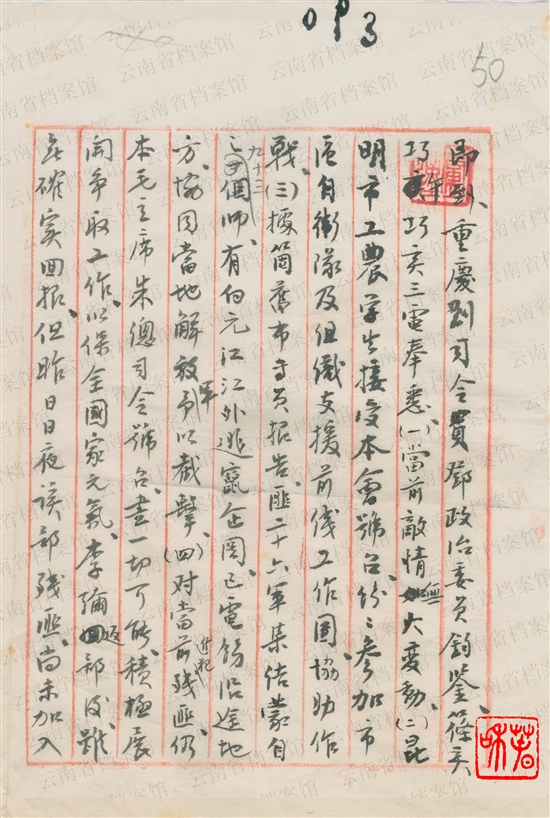 50
即到、重慶劉司令員鄧政治委員鈞鑒、篠亥
巧午巧亥三電奉悉、(一)當前敵情無大變動、(二)昆
明市工農学生接受本會號召紛〻參加市
區自衛隊及組織支援前线工作團、協助作
戰、(三)據箇舊市守員报告匪二十六軍集结蒙自
之九十三個師、有向元江江外逃竄企圖、已電飭沿途地
方、協同當地解放軍予以截擊、(四)对當前進犯残匪仍
本毛主席朱總司令號召、盡一切可能、積極展
開争取工作、以保全國家元氣、李彌返部後、雖
無確實回报、但昨日日夜該部残匪、尚未加入
云南省档案馆